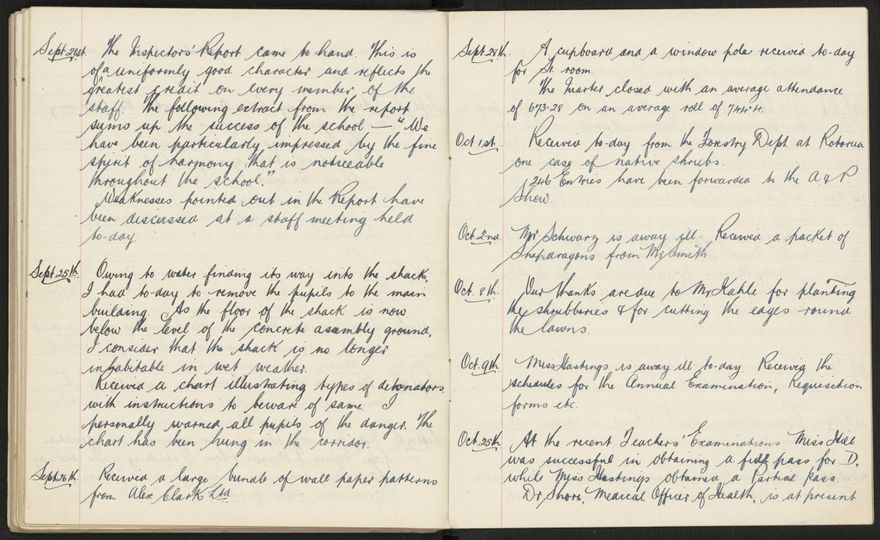 Sept. 21st. The Inspectors' Report came to hand. This is
of a uniformly good character and reflects the
greatest credit on every member of the
staff. The following extract from the report
sums up the success of the school — "We
have been particularly impressed by the fine
spirit of harmony that is noticeable
throughout the school."
Weaknesses pointed out in the Report have
been discussed at a staff meeting held
to-day.
Sept. 25th. Owing to water finding its way into the shack,
I had to-day to remove the pupils to the main
building. As the floor of the shack is now
below the level of the concrete assembly ground,
I consider that the shack is no longer
inhabitable in wet weather.
Received a chart illustrating types of detonators
with instructions to beware of same. I
personally warned all pupils of the danger. The
chart has been hung in the corridor.
Sept. 26th. Received a large bundle of wall paper patterns
from Alex Clark Ltd.
Sept. 28th. A cupboard and a window pole received to-day
for St. room.
The Quarter closed with an average attendance
of 673.28 on an average roll of 744.4.
Oct 1st. Received to-day from the Forestry Dept at Rotorua
one case of native shrubs.
246 Entries have been forwarded to the A & P
Show.
Oct. 2nd. Mr Schwarz is away ill. Received a packet of
Snapdragons from Mr Smith.
Oct. 8th. Our thanks are due to Mr Kahle for planting
the shrubberies & for cutting the edges round
the lawns.
Oct. 9th. Miss Hastings is away ill to-day. Received the
schedules for the Annual Examination, Requisition
forms etc.
Oct. 25th. At the recent Teachers' Examinations Miss
was successful in obtaining a full pass for D,
while Miss Hastings obtained a Partial Pass.
Dr Shore, Medical Officer of Health, is at present